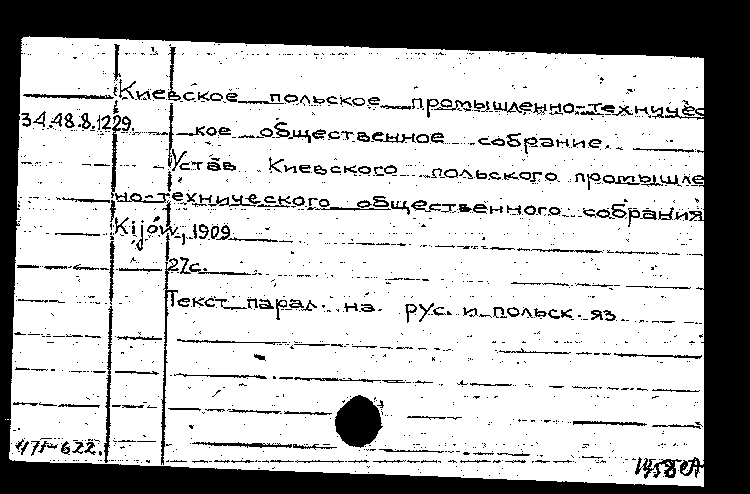 Киевское польское промышленно-техничес
34.48.8.1229.
кое общественное собрание.
Устав Киевского польского промышле
но-технического общественного собрания
Kijów, 1909.
27с.
Текст парал. на рус. и польск. яз.
471-622.